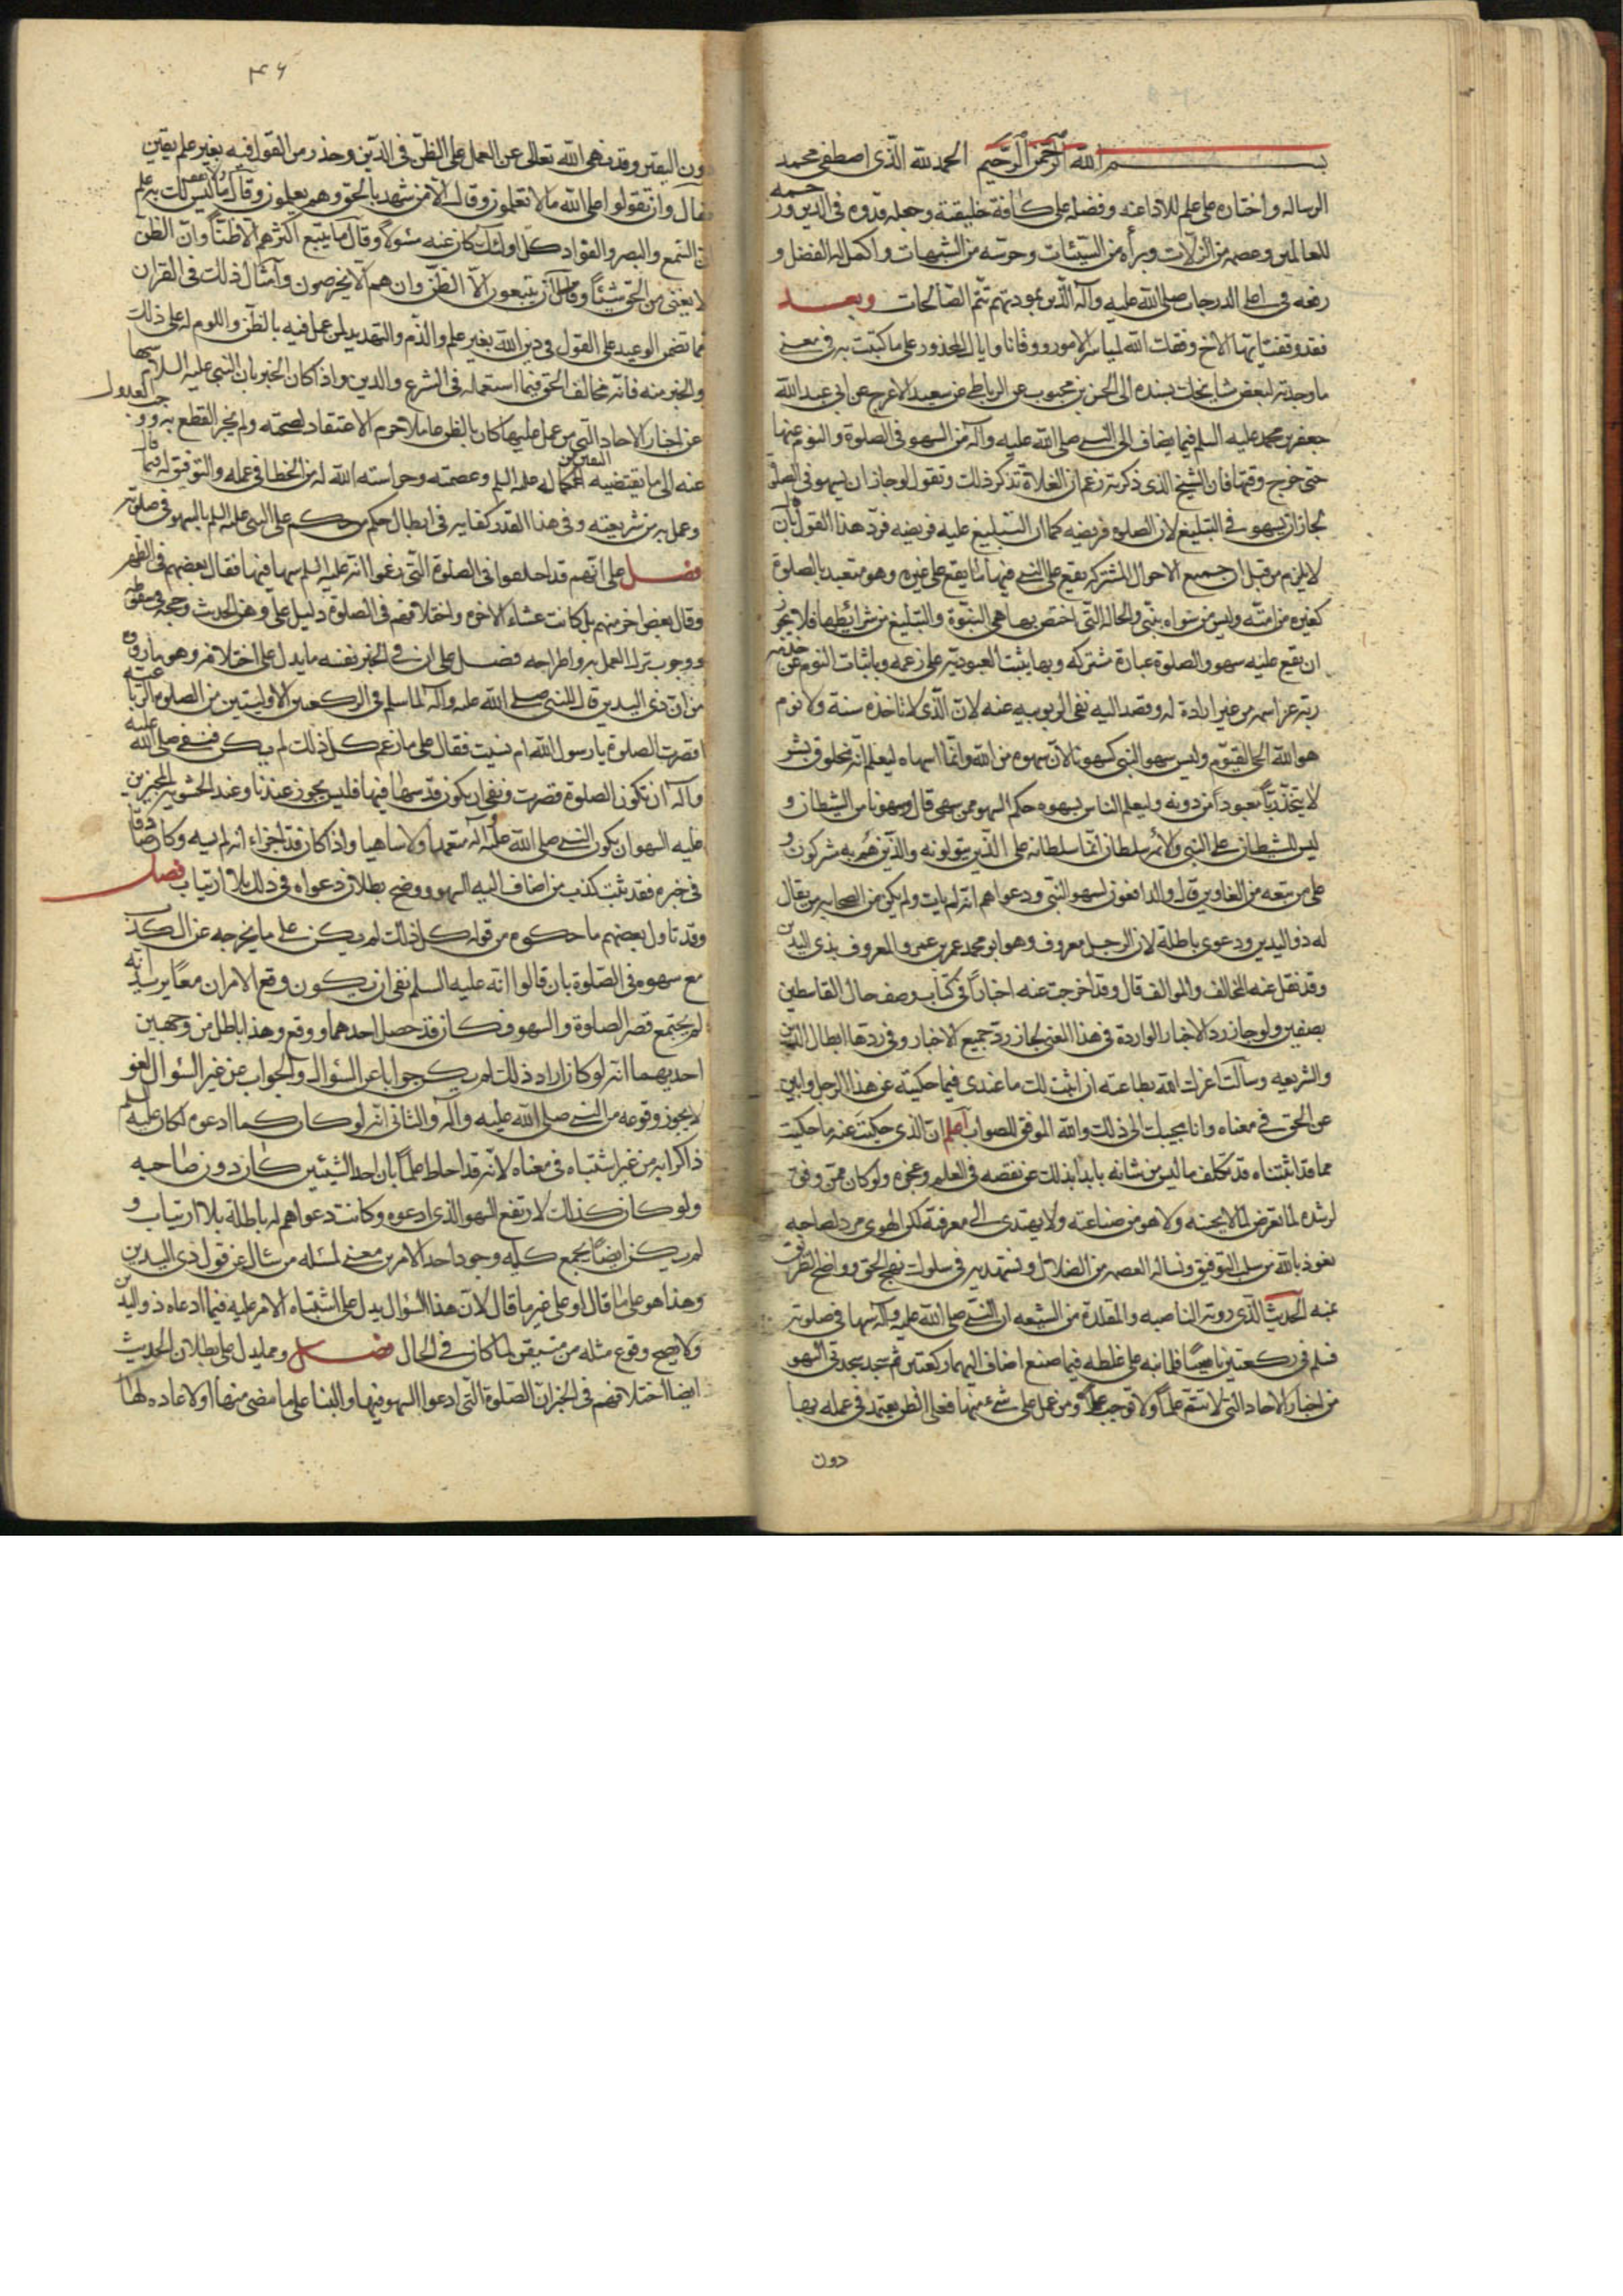 بسم الله الرحمن الرحيم الحمد لله الذى اصطفى محمد
الرساله واختاره على علم للاداعنه وفضله على كافة خليقته وجعله قدوه فى الدين ورحمه
للعالمين وعصمه من الزلات وبرأه من السيئات وحرسه من الشبهات واكمل له الفضل و
رفعه فى اعلى الدرجات صلى الله عليه وآله الذين بمودتهم تتم الصالحات وبعد
فقد وقفت ايها الاخ وفقك الله لمياسر الامور ووقانا واياك المحذور على ما كتبت به فى معنى
ما وجدته لبعض مشايخك بسنده الى الحسن بن محبوب عن الرباطى عن سعيد الاعرج عن ابى عبد الله
جعفر بن محمد عليه السلم فيما يضاف الى النبى صلى الله عليه وآله من السهو فى الصلوة والنوم عنها
حتى خرج وقتها فان الشيخ الذى ذكرته زعم ان الغلاة تذكر ذلك وتقول لو جاز ان يسهو فى الصلوة
لجاز ان يسهو فى التبليغ لان الصلوة فريضه كما ان التبليغ عليه فريضه فرد هذا القول بان
لا يلزم من قبل ان جميع الاحوال المشتركه يقع على النبى فيها ما يقع على غيره وهو متعبد بالصلوة
كغيره من امته وليس من سواه بنبى والحاله التى اختص بها هى النبوة والتبليغ من شرائطها فلا يجوز
ان يقع عليه سهو والصلوة عبادة مشتركه وبها يثبت العبوديه على زعمه وباثبات النوم عن خدمة
ربه عز اسمه من غير ارادة له وقصد اليه نفى الربوبيه عنه لان الذى لا تاخذه سنة ولا نوم
هو الله الحى القيوم وليس سهو النبى كسهونا لان سهوه من الله وانما اسهاه ليعلم انه مخلوق بشر
لا يتخذ ربا معبودا من دونه وليعلم الناس بسهوه حكم السهو متى سهى قال وسهونا من الشيطان و
ليس للشيطان على النبى والائمه سلطان انما سلطانه على الذين يتولونه والذين هم به مشركون و
على من تبعه من الغاوين قال والدافعون لسهو النبى ودعواهم انه لم يات ولم يكن من الصحابه من يقال
له ذو اليدين ودعوى باطلة لان الرجل معروف وهو ابو محمد عمير بن عمرو المعروف بذى اليدين
وقد نقل عنه المخالف والموالف قال وقد اخرجت عنه اخبارا فى كتاب وصف حال القاسطين
بصفين ولو جاز رد الاخبار الواردة فى هذا المعنى لجاز رد جميع الاخبار وفى ردها ابطال الدين
والشريعه وسالت اعزك الله بطاعته ان اثبت لك ما عندى فيما حكيته عن هذا الرجل وابين
عن الحق فى معناه وانا مجيبك الى ذلك والله الموفق للصواب اعلم ان الذى حكيت عنه ما حكيت
مما قد اثبتناه قد تكلف ما ليس من شانه بابدا بذلك عن نقصه فى العلم وعجزه ولو كان ممن وفق
لرشده لما تعرض لما لا يحسنه ولا هو من صناعته ولا يهتدى الى معرفته لكن الهوى مرد لصاحبه
نعوذ بالله من سلب التوفيق ونساله العصمه من الضلال ونستهديه فى سلوك نهج الحق وواضح الطريق
بمنه الحديث الذى روته الناصبه والمقلدة من الشيعه ان النبى صلى الله عليه وآله سها فى صلوته
فسلم فى ركعتين ناسيا فلما نبه على غلطه فيما صنع اضاف اليهما ركعتين ثم سجد سجدتى السهو
من اخبار الاحاد التى لا تثمر علما ولا توجب عملا ومن عمل على شىء منها فعلى الظن يعتمد فى عمله بها
دون
۴۶
دون اليقين وقد نهى الله تعالى عن العمل على الظن فى الدين وحذر من القول فيه بغير علم يقين
فقال وان تقولوا على الله ما لا تعلمون وقال الا من شهد بالحق وهم يعلمون وقال ولا تقف ما ليس لك به علم
ان السمع والبصر والفواد كل اولئك كان عنه مسئولا وقال وما يتبع اكثرهم الا ظنا وان الظن
لا يغنى من الحق شيئا وقال ان يتبعون الا الظن وان هم الا يخرصون وامثال ذلك فى القران
مما تضمن الوعيد على القول فى دين الله بغير علم والذم والتهديد لمن عمل فيه بالظن واللوم له على ذلك
والخبر منه فانه مخالف الحق فيما استعمله فى الشرع والدين واذا كان الخبر بان النبى عليه السلام سها
من اخبار الاحاد التى من عمل عليها كان بالظن عاملا حرم الاعتقاد لصحته ولم يجز القطع به ووجب العدول
عنه الى ما يقتضيه اليقين من كماله عليه السلم وعصمته وحراسته الله له من الخطا فى عمله والتوفيق له فيما قال
وعمل به من شريعته وفى هذا القدر كفايه فى ابطال حكم من حكم على النبى عليه السلم بالسهو فى صلوته
فصل على انهم قد اختلفوا فى الصلوة التى زعموا انه عليه السلم سها فيها فقال بعضهم فى الظهر
وقال بعض اخر منهم بل كانت عشاء الاخره واختلافهم فى الصلوة دليل على وهن الحديث وحجه فى سقوطه
ووجوب ترك العمل به واطراحه فصل على ان فى الخبر نفسه ما يدل على اختلافه وهو ما رووه
من ان ذى اليدين قال للنبى صلى الله عليه وآله لما سلم فى الركعتين الاولتين من الصلوة الرباعيه
اقصرت الصلوة يا رسول الله ام نسيت فقال على ما زعم كل ذلك لم يكن فنفى صلى الله عليه
وآله ان تكون الصلوة قصرت ونفى ان يكون قد سها فيها فليس يجوز عندنا وعند الحشويه المجيزين
عليه السهو ان يكون النبى صلى الله عليه وآله متعمدا ولا ساهيا واذا كان قد اخبر انه لم يسه وكان صادقا
فى خبره فقد ثبت كذب من اضاف اليه السهو ووضح بطلان دعواه فى ذلك بلا ارتياب فصل
وقد تاول بعضهم ما حكوه من قوله كل ذلك لم يكن على ما يخرجه عن الكذب
مع سهوه فى الصلوة بان قالوا انه عليه السلم نفى ان يكون وقع الامران معا يريد انه
لم يجتمع قصر الصلوة والسهو فكان قد حصل احدهما ووقع وهذا باطل من وجهين
احديهما انه لو كان اراد ذلك لم يكن جوابا عن السؤال والجواب عن غير السؤال لغو
لا يجوز وقوعه من النبى صلى الله عليه وآله والثانى انه لو كان كما ادعوه لكان عليه السلم
ذاكرا به من غير اشتباه فى معناه لانه قد احاط علما بان احد الشيئين كان دون صاحبه
ولو كان كذلك لارتفع السهو الذى ادعوه وكانت دعواهم له باطلة بلا ارتياب و
لم يكن ايضا يجمع كيله وجود احد الامرين معنى لمسئله من سال عن قول ذى اليدين
وهذا هو على ما قال او على غير ما قال لان هذا السؤال يدل على اشتباه الامر عليه فيما ادعاه ذو اليدين
ولا يصح وقوع مثله من متيقن لما كان فى الحال فصل ومما يدل على بطلان الحديث
ايضا اختلافهم فى الخبر ان الصلوة التى ادعوا السهو فيها والبنا على ما مضى منها او الاعاده لها